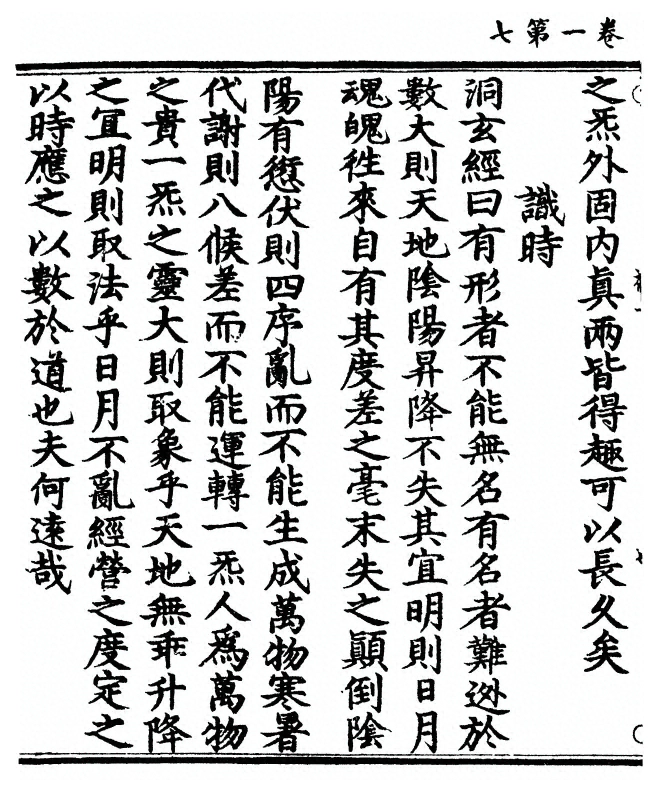 卷一第七
之炁外固内眞兩皆得趣可以長久矣
識時
洞玄經曰有形者不能無名有名者難逃於
數大則天地陰陽昇降不失其宜明則日月
魂魄徃來自有其度差之毫末失之顛倒陰
陽有愆伏則四序亂而不能生成萬物寒暑
代謝則八候差而不能運轉一炁人爲萬物
之貴一炁之靈大則取象乎天地無乖升降
之宜明則取法乎日月不亂經營之度定之
以時應之以數於道也夫何逺哉